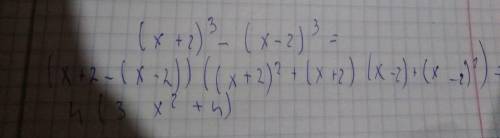 (x+2)³ - (x-2)³ =
(x+2-(x-2))((x+2)²+(x+2)(x-2)+(x-2)²)=
4(3x²+4)